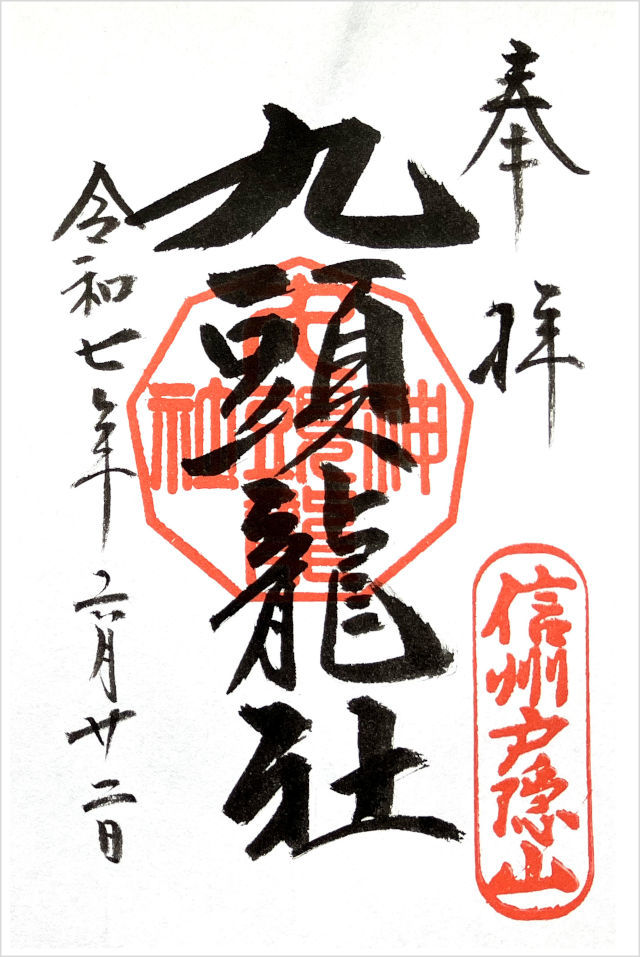 奉拝
信州戸隠山
九頭龍社
神九頭龍社
令和七年六月廿二日